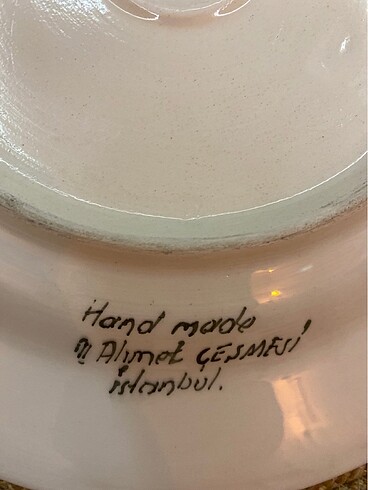 Hand made
III Ahmet ÇEŞMESİ
İstanbul.